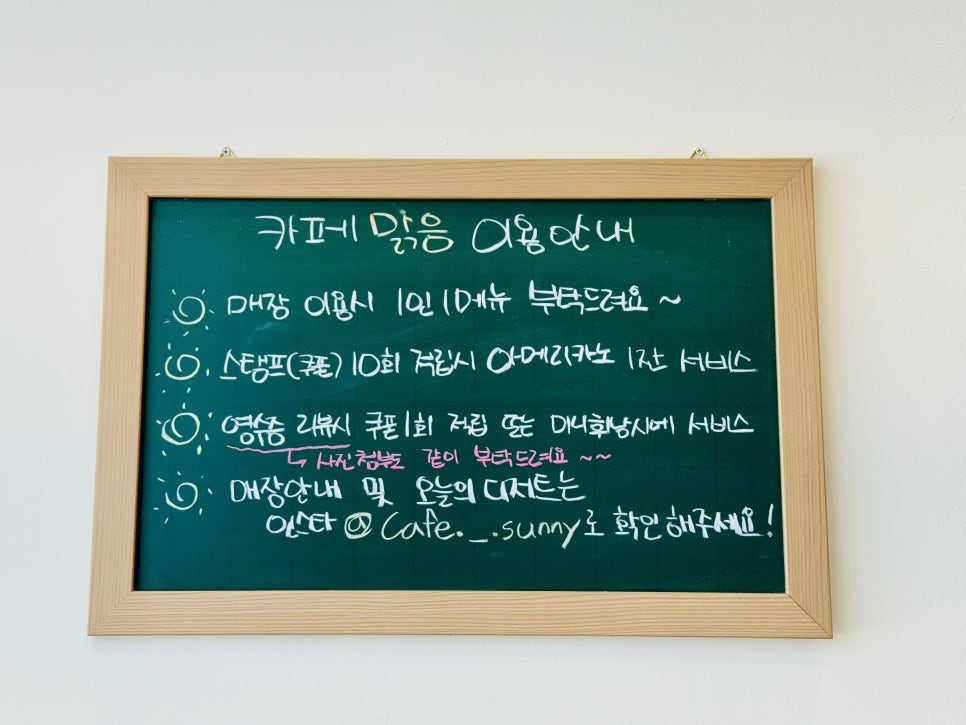 카페 맑음 이용안내
매장 이용시 1인 1메뉴 부탁드려요~
스탬프(쿠폰) 10회 적립시 아메리카노 1잔 서비스
영수증 리뷰시 쿠폰 1회 적립 또는 미니휘낭시에 서비스
↳ 사진첨부도 같이 부탁드려요~~
매장안내 및 오늘의 디저트는
인스타 @cafe._.sunny로 확인해주세요!